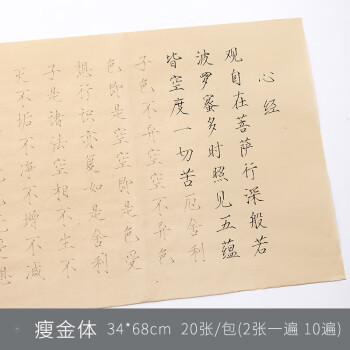 心经
观自在菩萨行深般若
波罗蜜多时照见五蕴
皆空度一切苦厄舍利
子色不异空空不异色
色即是空空即是色受
想行识亦复如是舍利
子是诸法空相不生不
灭不垢不净不增不减
瘦金体 34*68cm 20张/包(2张一遍 10遍)